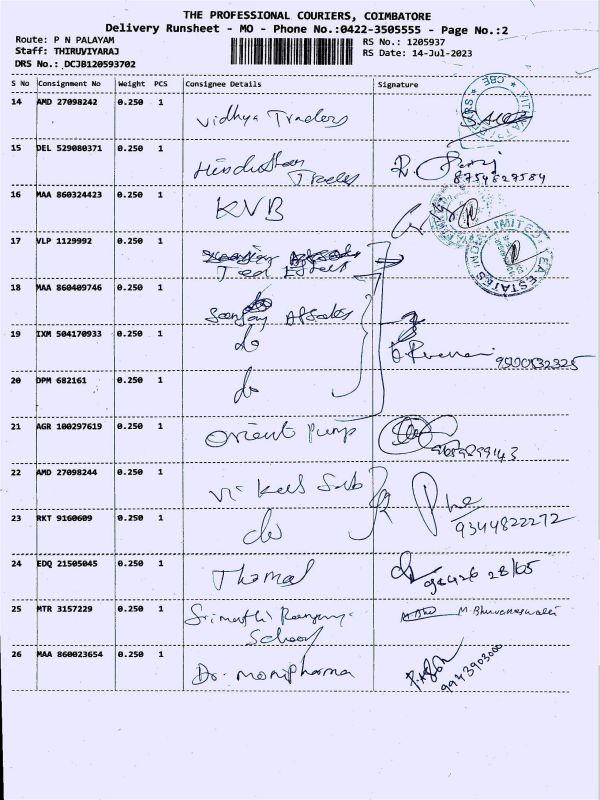 THE PROFESSIONAL COURIERS, COIMBATORE
Delivery Runsheet - MO - Phone No.:0422-3505555 - Page No.:2
Route: P N PALAYAM
RS No.: 1205937
Staff: THIRUVIYARAJ
RS Date: 14-Jul-2023
DRS No.:_DCJB120593702
S No Consignment No Weight PCS Consignee Details Signature
14 AMD 27098242 0.250 1 Vidhya Traders
15 DEL 529080371 0.250 1 Hindusthan Trades
8754827584
16 MAA 860324423 0.250 1 KVB
17 VLP 1129992 0.250 1 Tea Estate
18 MAA 860409746 0.250 1 Sanjay
19 IXM 504170933 0.250 1 do
9500532325
20 DPM 682161 0.250 1 do
21 AGR 100297619 0.250 1 Orient pump
9659299143
22 AMD 27098244 0.250 1
23 RKT 9160609 0.250 1 do
9344822272
24 EDQ 21505045 0.250 1 Thamal
94426 28165
25 MTR 3157229 0.250 1 School M. Bhuvaneswari
26 MAA 860023654 0.250 1 Dr. monipharma
9943903000